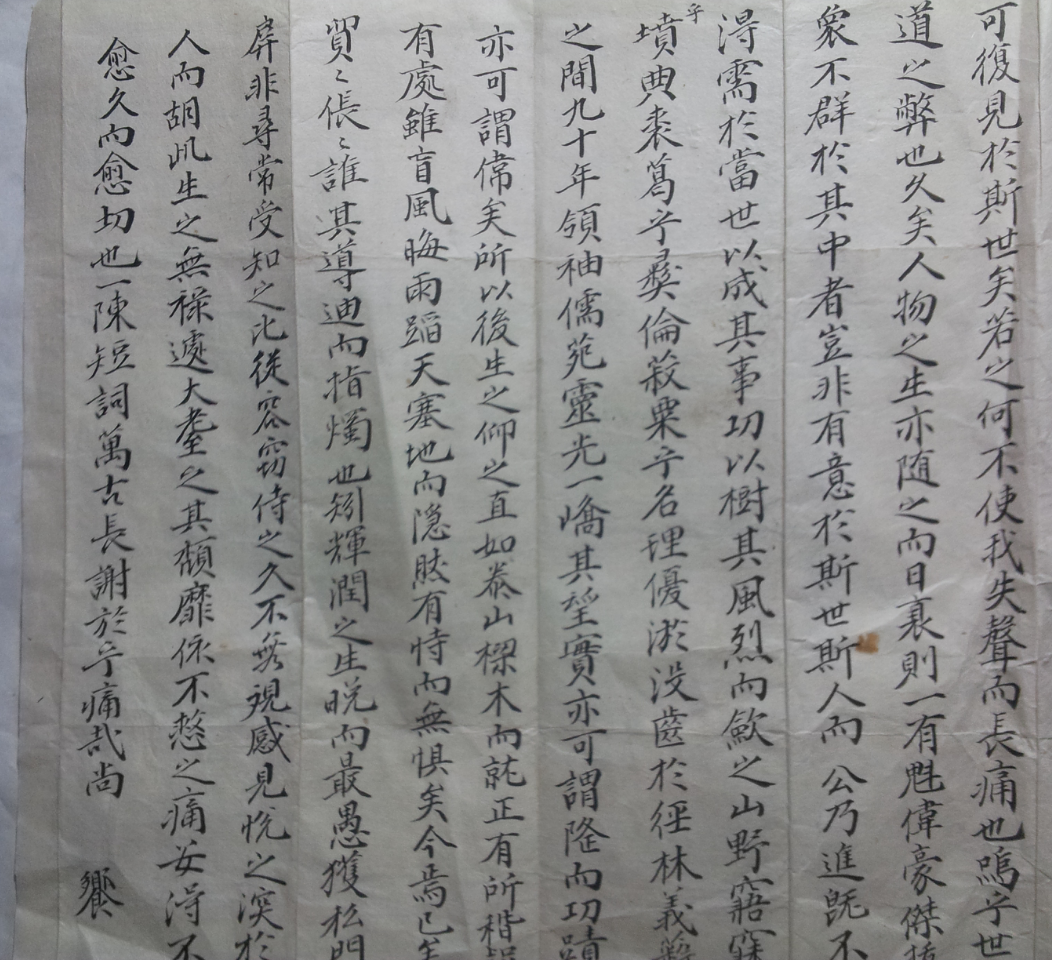 可復見於斯世矣若之何不使我失聲而長痛也嗚乎世
道之弊也久矣人物之生亦随之而日衰則一有魁偉豪傑
衆不群於其中者豈非有意於斯世斯人而 公乃進旣不
淂需於當世以成其事功以樹其風烈而斂之山野寤寐
乎墳典裘葛乎彛倫菽粟乎名理優游沒齒於徑林義
之間九十年領袖儒苑靈光一嶠其望實亦可謂隆而功蹟
亦可謂偉矣所以後生之仰之直如泰山樑木而就正有所稽
有處雖盲風晦雨蹈天塞地而隠然有恃而無惧矣今焉已矣
貿〻倀〻誰其導迪而指燭也矧輝潤之生晩而最愚獲私門
屛非尋常受知之比從容窃侍之久不無覌感見悦之深於
人而胡此生之無祿遽大耋之其頽靡依不憗之痛安淂不
愈久而愈切也一陳短詞萬古長謝於乎痛哉尚 饗